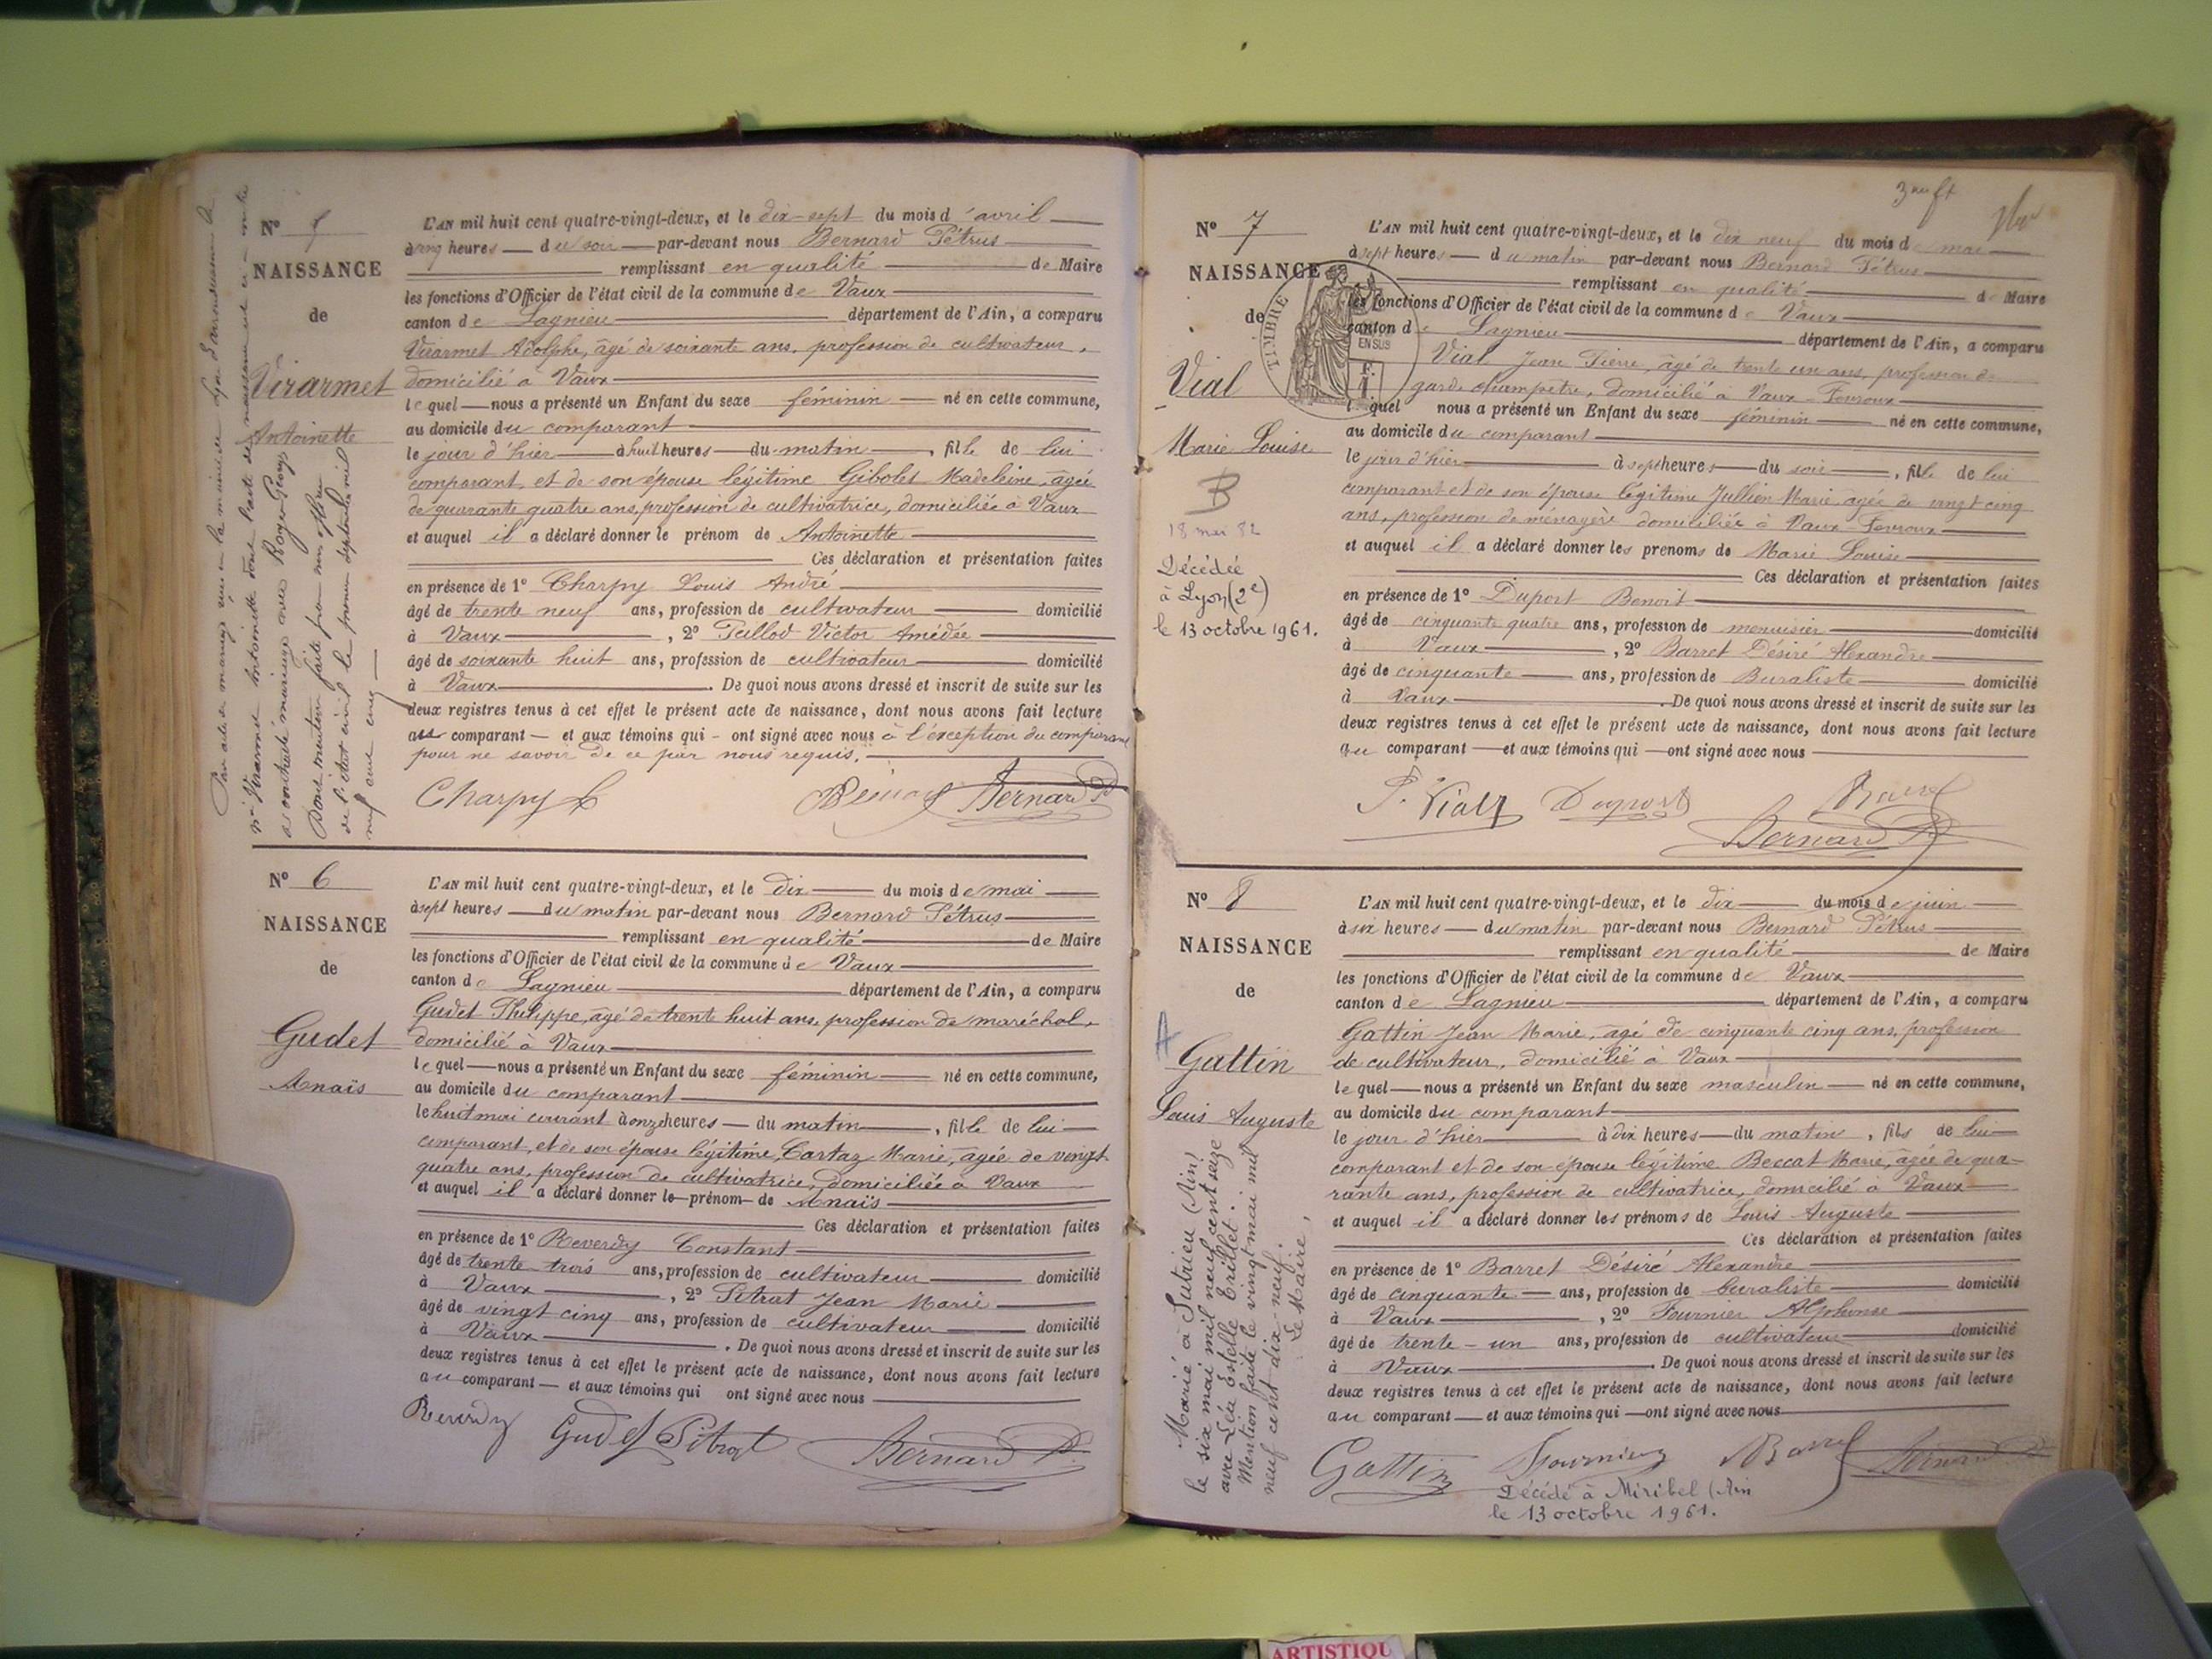 Nº 5
NAISSANCE
de
Virarmet
Antoinette
L'AN mil huit cent quatre-vingt-deux, et le dix-sept du mois d'avril
à cinq heures du soir par-devant nous Bernard Pétrus
remplissant en qualité de Maire
les fonctions d'Officier de l'état civil de la commune de Vaux
canton de Lagnieu département de l'Ain, a comparu
Virarmet Adolphe, âgé de soixante ans, profession de cultivateur,
domicilié à Vaux
lequel nous a présenté un Enfant du sexe féminin né en cette commune,
au domicile du comparant
le jour d'hier à huit heures du matin, fille de lui
comparant, et de son épouse légitime Gibolet Madeleine, âgée
de quarante quatre ans, profession de cultivatrice, domiciliée à Vaux
et auquel il a déclaré donner le prénom de Antoinette
Ces déclaration et présentation faites
en présence de 1º Charpy Louis André
âgé de trente neuf ans, profession de cultivateur domicilié
à Vaux, 2º Victor Amédée
âgé de soixante huit ans, profession de cultivateur domicilié
à Vaux. De quoi nous avons dressé et inscrit de suite sur les
deux registres tenus à cet effet le présent acte de naissance, dont nous avons fait lecture
au comparant et aux témoins qui ont signé avec nous à l'exception du comparant
pour ne savoir de ce par nous requis.
Charpy L Bernard P
Nº 6
NAISSANCE
de
Gudet
Anaïs
L'AN mil huit cent quatre-vingt-deux, et le dix du mois de mai
à sept heures du matin par-devant nous Bernard Pétrus
remplissant en qualité de Maire
les fonctions d'Officier de l'état civil de la commune de Vaux
canton de Lagnieu département de l'Ain, a comparu
Gudet Philippe, âgé de trente huit ans, profession de maréchal,
domicilié à Vaux
lequel nous a présenté un Enfant du sexe féminin né en cette commune,
au domicile du comparant
le huit mai courant à onze heures du matin, fille de lui
comparant, et de son épouse légitime, Cartaz Marie, âgée de vingt
quatre ans, profession de cultivatrice, domiciliée à Vaux
et auquel il a déclaré donner le prénom de Anaïs
Ces déclaration et présentation faites
en présence de 1º Reverdy Constant
âgé de trente trois ans, profession de cultivateur domicilié
à Vaux, 2º Pitrat Jean Marie
âgé de vingt cinq ans, profession de cultivateur domicilié
à Vaux. De quoi nous avons dressé et inscrit de suite sur les
deux registres tenus à cet effet le présent acte de naissance, dont nous avons fait lecture
au comparant et aux témoins qui ont signé avec nous
Reverdy Gudet Pitrat Bernard P.
3me ft
Nº 7
NAISSANCE
de
Vial
Marie Louise
B
18 mai 82
Décédée
à Lyon (2e)
le 13 octobre 1961.
TIMBRE
EN SUS
L'AN mil huit cent quatre-vingt-deux, et le dix neuf du mois de mai
à sept heures du matin par-devant nous Bernard Pétrus
remplissant en qualité de Maire
les fonctions d'Officier de l'état civil de la commune de Vaux
canton de Lagnieu département de l'Ain, a comparu
Vial Jean Pierre, âgé de trente un ans, profession de
garde champêtre, domicilié à Vaux - Fevroux
lequel nous a présenté un Enfant du sexe féminin né en cette commune,
au domicile du comparant
le jour d'hier à sept heures du soir, fille de lui
comparant et de son épouse légitime Jullien Marie âgée de vingt cinq
ans, profession de ménagère domiciliée à Vaux - Fevroux
et auquel il a déclaré donner les prenoms de Marie Louise
Ces déclaration et présentation faites
en présence de 1º Duport Benoit
âgé de cinquante quatre ans, profession de menuisier domicilié
à Vaux, 2º Barret Désiré Alexandre
âgé de cinquante ans, profession de Buraliste domicilié
à Vaux. De quoi nous avons dressé et inscrit de suite sur les
deux registres tenus à cet effet le présent acte de naissance, dont nous avons fait lecture
au comparant et aux témoins qui ont signé avec nous
P. Vial Duport Barret
Bernard P
Nº 8
NAISSANCE
de
A
Gattin
Louis Auguste
Marié à Sutrieu (Ain)
le six mai mil neuf cent seize
avec Léa Estelle Brillet.
Mention faite le vingt mai mil
neuf cent dix-neuf.
Le Maire,
L'AN mil huit cent quatre-vingt-deux, et le dix du mois de juin
à six heures du matin par-devant nous Bernard Pétrus
remplissant en qualité de Maire
les fonctions d'Officier de l'état civil de la commune de Vaux
canton de Lagnieu département de l'Ain, a comparu
Gattin Jean Marie, âgé de cinquante cinq ans, profession
de cultivateur, domicilié à Vaux
lequel nous a présenté un Enfant du sexe masculin né en cette commune,
au domicile du comparant
le jour d'hier à dix heures du matin, fils de lui
comparant et de son épouse légitime Beccat Marie, âgée de qua-
rante ans, profession de cultivatrice, domicilié à Vaux
et auquel il a déclaré donner les prénoms de Louis Auguste
Ces déclaration et présentation faites
en présence de 1º Barret Désiré Alexandre
âgé de cinquante ans, profession de buraliste domicilié
à Vaux, 2º Fournier Alphonse
âgé de trente-un ans, profession de cultivateur domicilié
à Vaux. De quoi nous avons dressé et inscrit de suite sur les
deux registres tenus à cet effet le présent acte de naissance, dont nous avons fait lecture
au comparant et aux témoins qui ont signé avec nous
Gattin Fournier Barret Bernard P
Décédé à Miribel (Ain
le 13 octobre 1961.
ARTISTIQU